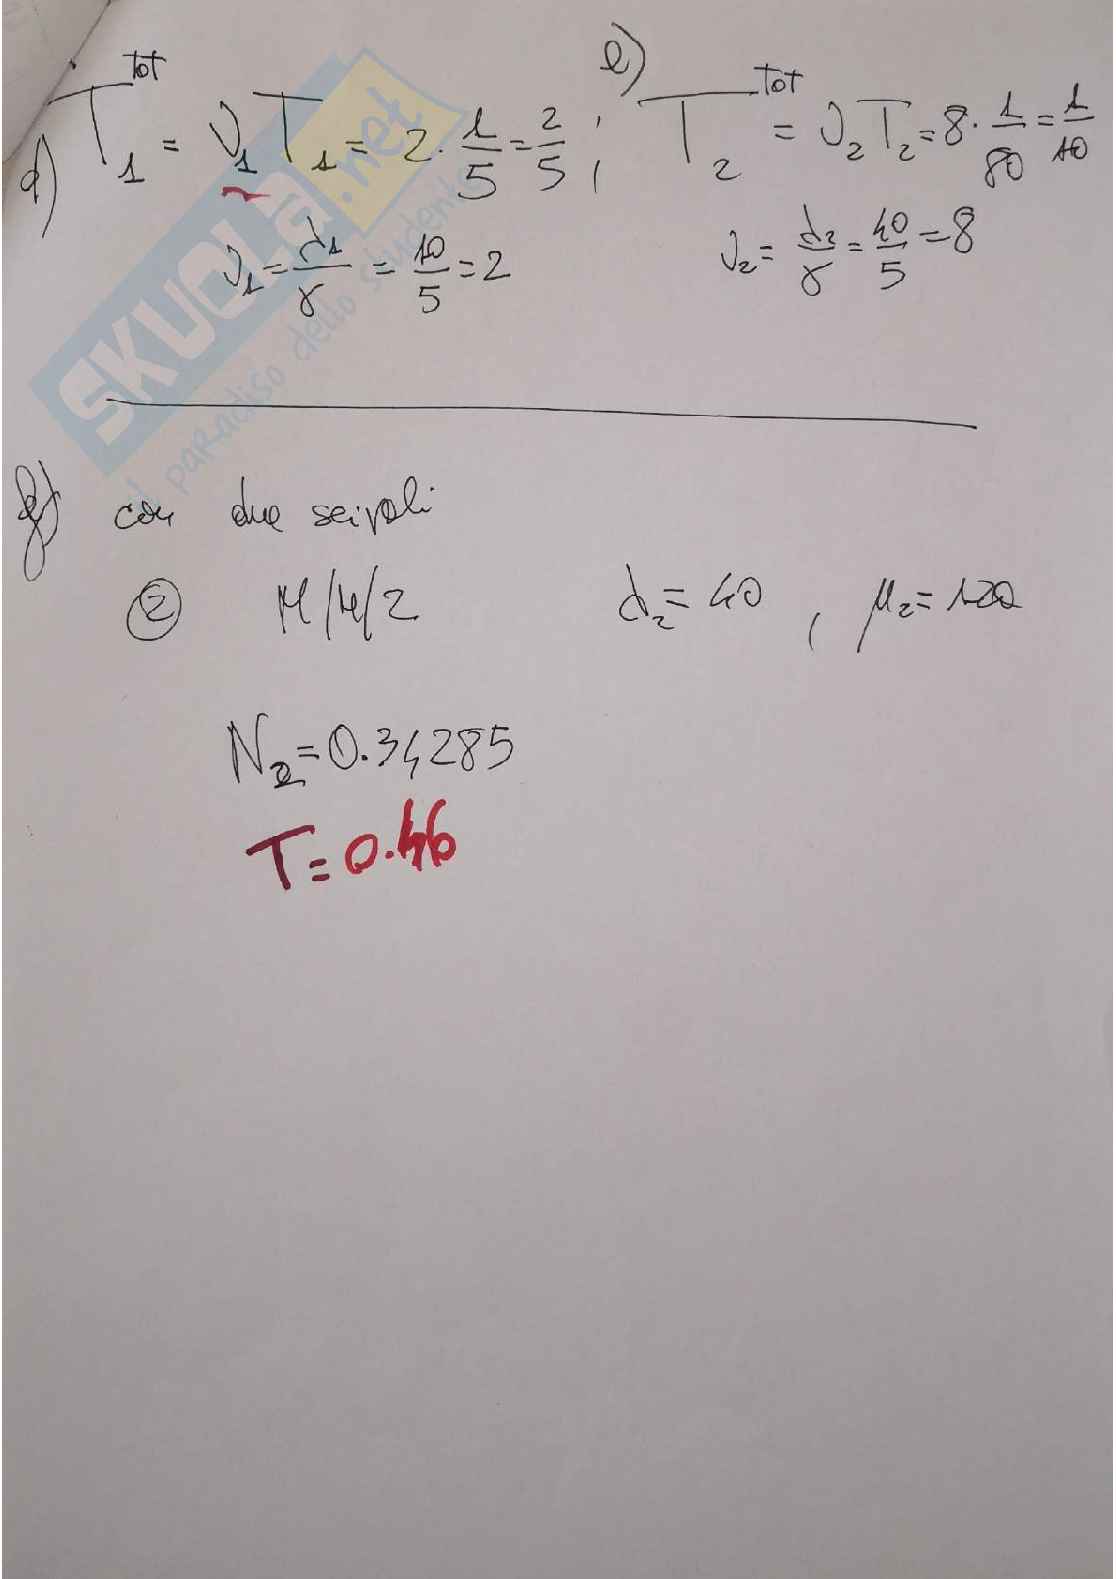 d) T₁ᵗᵒᵗ = ν₁ T₁ = 2 · 1/5 = 2/5 ;
ν₁ = λ₁/γ = 10/5 = 2
e) T₂ᵗᵒᵗ = ν₂ T₂ = 8 · 1/80 = 1/10
ν₂ = λ₂/γ = 40/5 = 8
SKUOLA.net
il paradiso dello studente
f) con due serventi
② M/M/2 λ₂ = 40 , μ₂ = 120
N₂ = 0.34285
T = 0.46